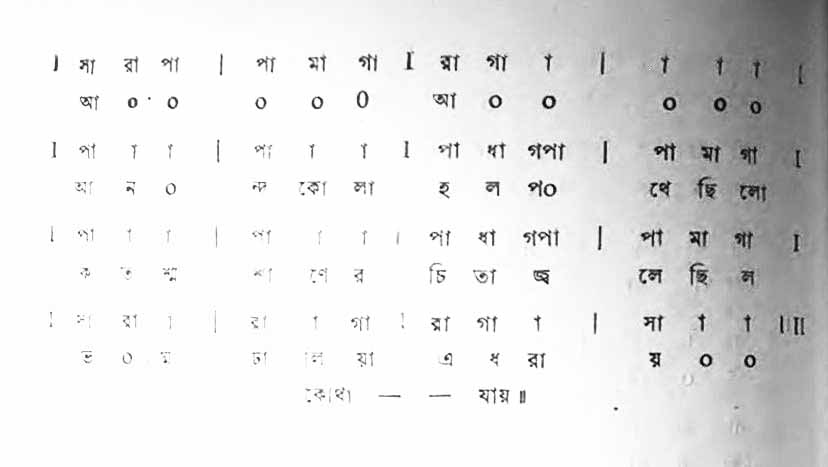 I সা রা পা | পা মা গা I রা গা া | া া া I
আ ০ ০ ০ ০ ০ আ ০ ০ ০ ০ ০
I পা া া | পা া া I পা ধা গপা | পা মা গা I
আ ন ০ ন্দ কো লা হ ল প০ থে ছি লো
I পা া া | পা া া I পা ধা গপা | পা মা গা I
ক ত শ্ম শা ণে র চি তা জ্ব লে ছি ল
I সা রা া | রা া গা I রা গা া | সা া া I II
ভ ০ ম ঢা লি য়া এ ধ রা য় ০ ০
কোথা — — যায় ॥